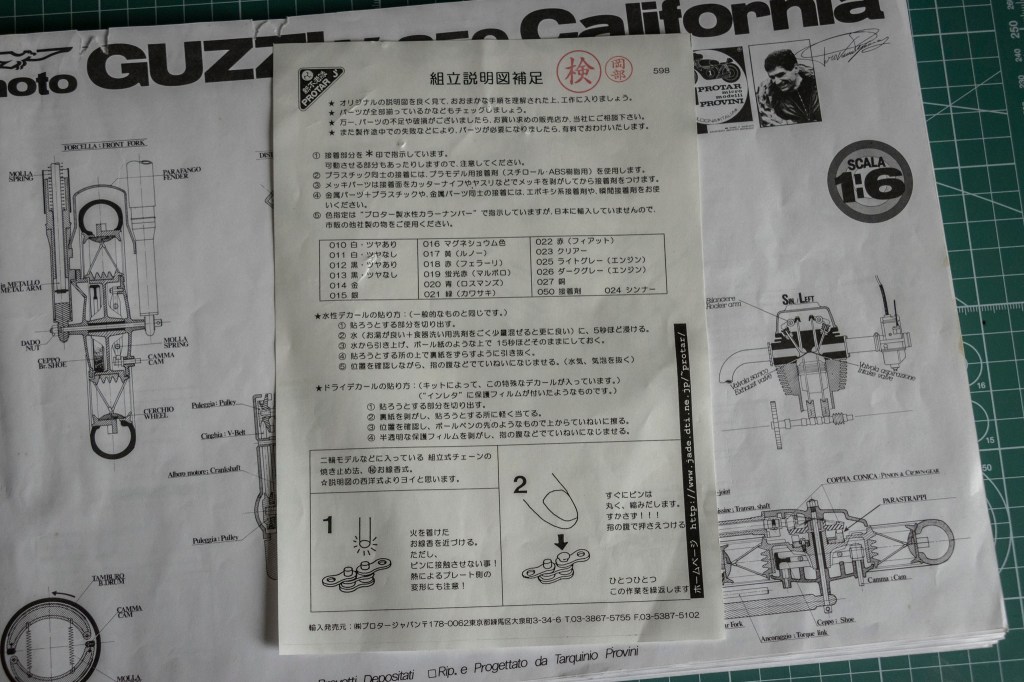 moto GUZZI 850 California
PROTAR
micro
modelli
PROVINI
SCALA
1:6
FORCELLA: FRONT FORK
MOLLA
SPRING
PARAFANGO
FENDER
DADO
NUT
CEPPO
Br. SHOE
MOLLA
SPRING
CAMMA
CAM
CERCHIO
WHEEL
Puleggia: Pulley
Cinghia: V-Belt
Albero motore: Crankshaft
Puleggia: Pulley
TAMBURO
B.DRUM
CAMMA
CAM
MOLLA
PROTAR J
組立説明図補足
検
岡部
598
★ オリジナルの説明図を良く見て、おおまかな手順を理解された上、工作に入りましょう。
★ パーツが全部揃っているかなどもチェックしましょう。
★ 万一、パーツの不足や破損がございましたら、お買い求めの販売店か、当社にご相談下さい。
★ また製作途中での失敗などにより、パーツが必要になりましたら、有料でおわけいたします。
① 接着部分を＊印で指示しています。
可動させる部分もあったりしますので、注意してください。
② プラスチック同士の接着には、プラモデル用接着剤（スチロール・ABS樹脂用）を使用します。
③ メッキパーツは接着面をカッターナイフやヤスリなどでメッキを剥がしてから接着剤をつけます。
④ 金属パーツ＋プラスチックや、金属パーツ同士の接着には、エポキシ系接着剤や、瞬間接着剤をお使
いください。
⑤ 色指定は“プロター製水性カラーナンバー”で指示していますが、日本に輸入していませんので、
市販の他社製の物をご使用ください。
010 白・ツヤあり
011 白・ツヤなし
012 黒・ツヤあり
013 黒・ツヤなし
014 金
015 銀
016 マグネシュウム色
017 黄（ルノー）
018 赤（フェラーリ）
019 蛍光赤（マルボロ）
020 青（ロスマンズ）
021 緑（カワサキ）
022 赤（フィアット）
023 クリアー
025 ライトグレー（エンジン）
026 ダークグレー（エンジン）
027 銅
050 接着剤 024 シンナー
★水性デカールの貼り方：（一般的なものと同じです。）
① 貼ろうとする部分を切り出す。
② 水（お湯が良い＋食器洗い用洗剤をごく少量混ぜると更に良い）に、5秒ほど浸ける。
③ 水から引き上げ、ボール紙のような上で 15秒ほどそのままにしておく。
④ 貼ろうとする所の上で裏紙をずらすように引き抜く。
⑤ 位置を確認しながら、指の腹などでていねいになじませる。（水気、気泡を抜く）
★ドライデカールの貼り方：（キットによって、この特殊なデカールが入っています。）
（“インレタ”に保護フィルムが付いたようなものです。）
① 貼ろうとする部分を切り出す。
② 裏紙を剥がし、貼ろうとする所に軽く当てる。
③ 位置を確認し、ボールペンの先のようなもので上からていねいに擦る。
④ 半透明な保護フィルムを剥がし、指の腹などでていねいになじませる。
二輪モデルなどに入っている 組立式チェーンの
焼き止め法、㊙お線香式。
☆説明図の西洋式よりヨイと思います。
1
火を着けた
お線香を近づける。
ただし、
ピンに接触させない事！
熱によるプレート側の
変形にも注意！
2
すぐにピンは
丸く、縮みだします。
すかさず！！！
指の腹で押さえつける
ひとつひとつ
この作業を繰返します
ホームページ http://www.jade.dti.ne.jp/~protar/
輸入発売元：㈱プロタージャパン〒178-0062東京都練馬区大泉町3-34-6 T.03-3867-5755 F.03-5387-5102
Bilanciere
Rocker arm
SIN./LEFT
Valvola scarico
Exhaust valve
Valvola aspirazione
Intake valve
COPPIA CONICA: PINION & CROWN GEAR
PARASTRAPPI
Camma: Cam
Ceppo: Shoe
Ancoraggio: Torque link
Fork
Depositati □ Rip. e Progettato da Tarquinio Provini